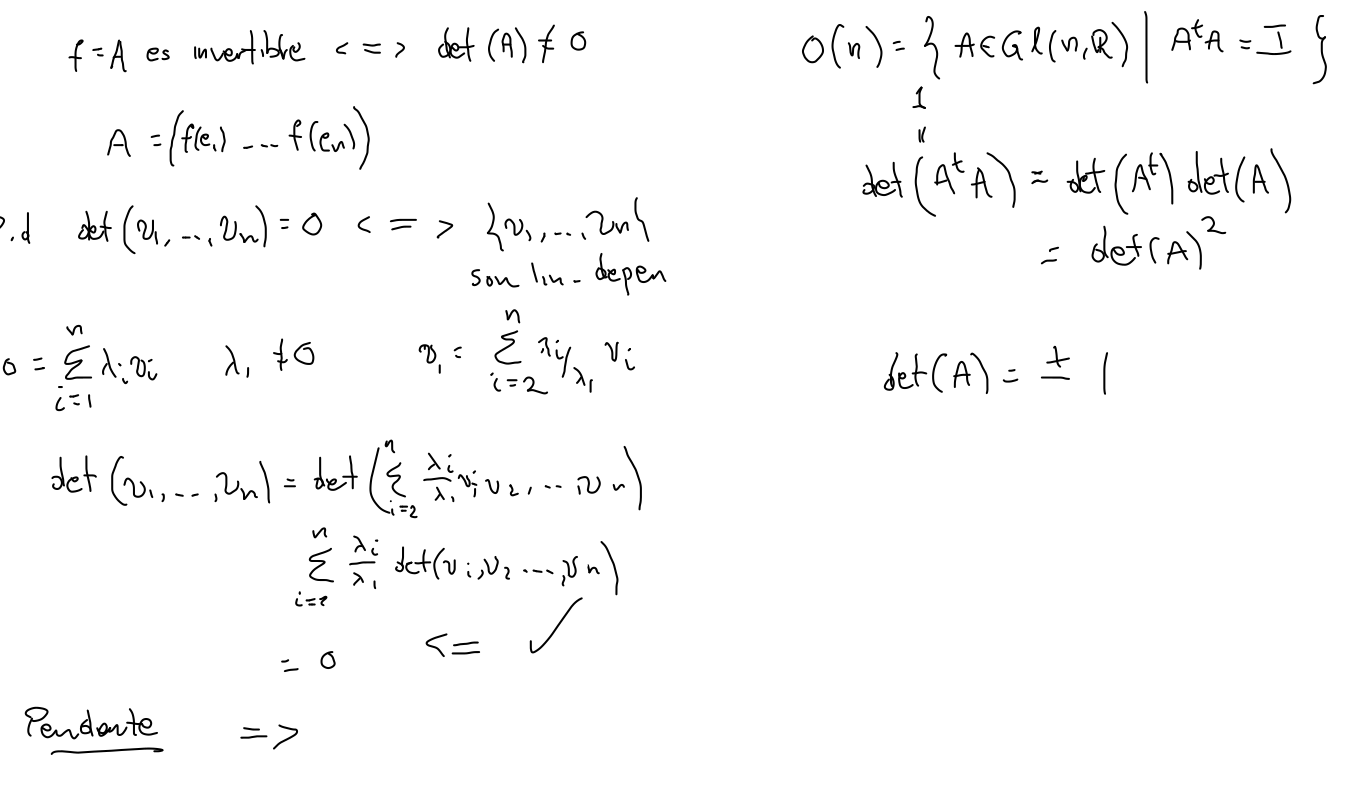 f = A es invertible <=> det (A) ≠ 0
A = (f(e₁) --- f(eₙ))
P.d det (v₁, --, vₙ) = 0 <=> {v₁, --, vₙ}
son lin - depen
0 = ∑ᵢ₌₁ⁿ λᵢvᵢ λ₁ ≠ 0 v₁ = ∑ᵢ₌₂ⁿ λᵢ/λ₁ vᵢ
det (v₁, --, vₙ) = det (∑ᵢ₌₂ⁿ λᵢ/λ₁ vᵢ, v₂, --, vₙ)
∑ᵢ₌₂ⁿ λᵢ/λ₁ det(vᵢ, v₂ ---, vₙ)
= 0 <= ✓
Pendante =>
O(n) = { A ∈ Gl(n,ℝ) | AᵗA = I }
1
"
det (AᵗA) = det (Aᵗ) det(A)
= det(A)²
det(A) = ± 1